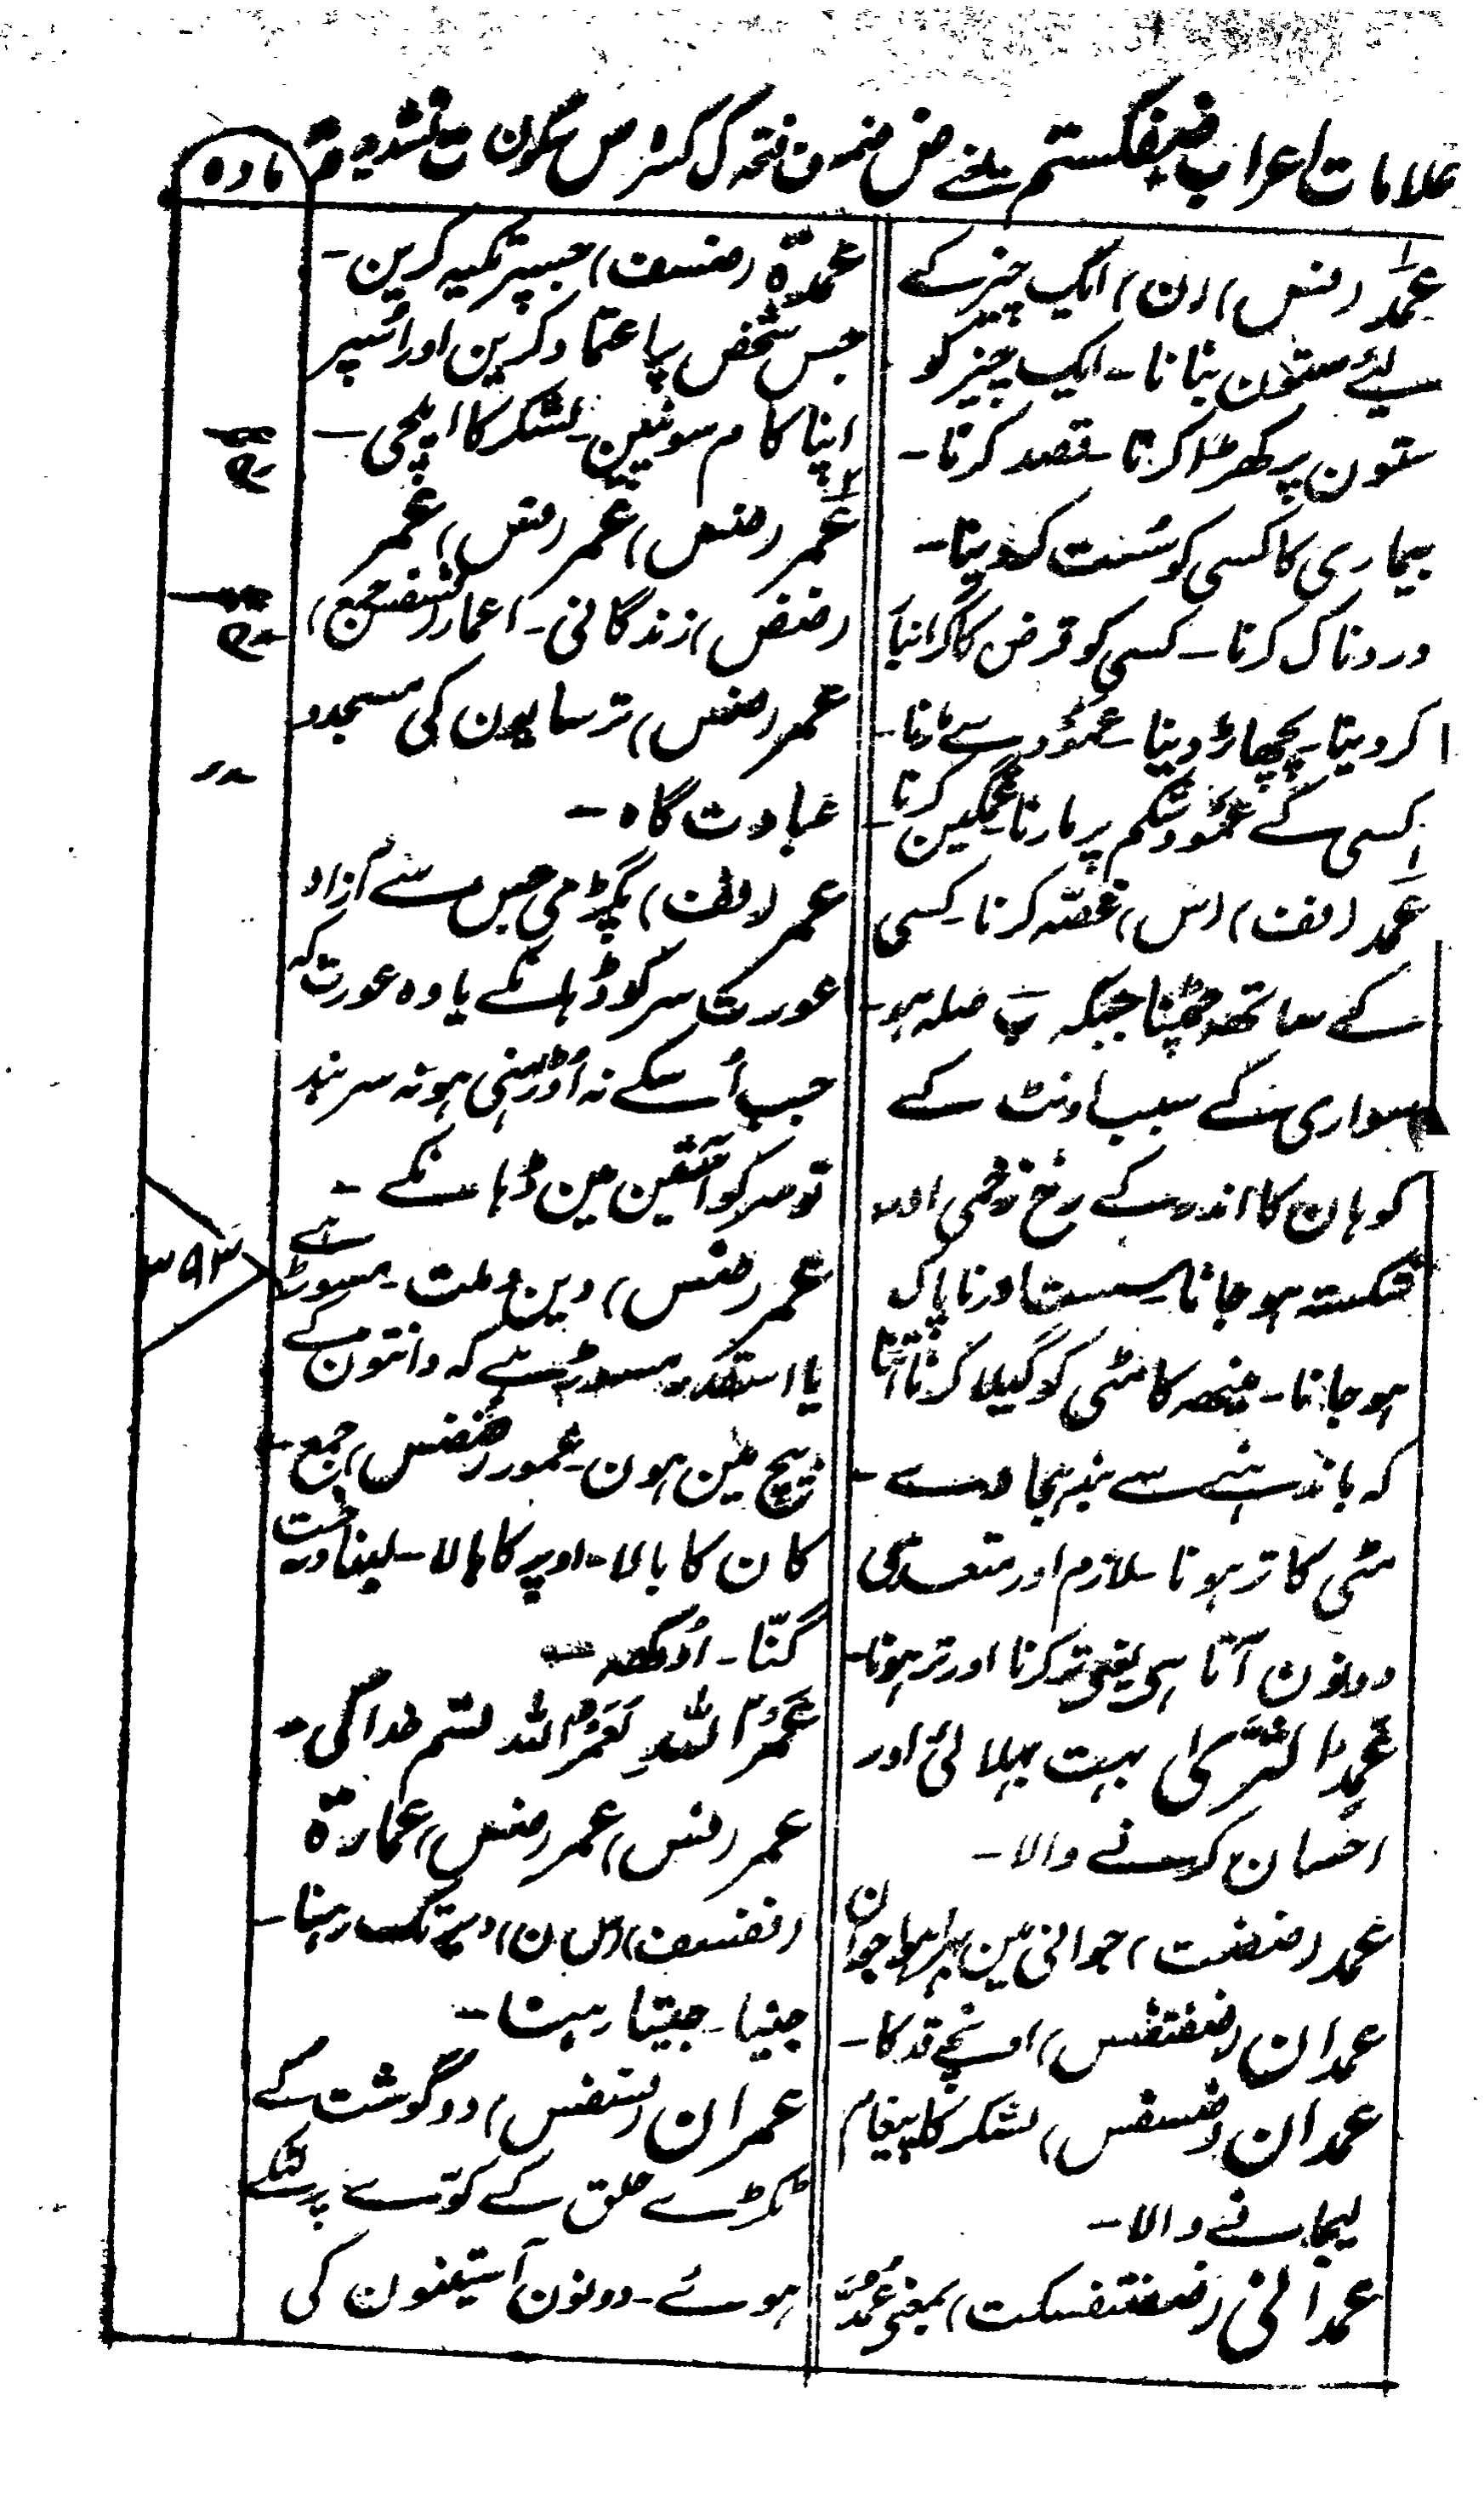 علامات اعراب ضیفکستم یعنے ض ضمہ ف فتحہ ک کسرہ س سکون ت تشدید
مادہ
عمد (فس) (ن) ایک چیز کے
لیے ستون بنانا۔ ایک چیز کو
ستون پر کھڑا کرنا۔ قصد کرنا۔
بیماری کا کسی کو سُست کر دینا۔
دردناک کرنا۔ کسی کو قرض کا گرانبار
کر دینا۔ پچھاڑ دینا۔ عمود سے مارنا۔
کسی کے عمود شکم پر مارنا۔ غمگین کرنا
عمد (فف) (س) غصّہ کرنا۔ کسی
کے ساتھ چمٹنا جبکہ بَ صلہ ہو۔
سواری کے سبب اونٹ کے
کوہان کا اندر کے رخ زخمی اور
شکستہ ہو جانا۔ سست اور ناپاک
ہو جانا۔ مینھ کا مٹی کو گیلا کرنا اتنا
کہ باندہنے سے بندہجاوے۔
مٹی کا تر ہونا۔ لازم اور متعدی
دونون آتا ہی یعنی تر کرنا اور تر ہونا۔
عَمِدُ الثَّریٰ بہت بہلائی اور
احسان کرنے والا۔
عمد (ضضت) جوانی مین بہرا ہوا جوان
عمدان (ضفتفس) اونچے قد کا۔
عمدان (ضسفس) لشکر کا پیغام
لیجانے والا۔
عمدانی (ضفتفسکت) بمعنی عُمُدّ
عمدۃ (ضسف) جسپر تکیہ کرین۔
جس شخص پر اعتماد کرین اور اُسپر
اپنا کام سونپین۔ لشکر کا ایلچی۔
عمر (ضس) عمر (فس) عمر
(ضض) زندگانی۔ اعمار جمع
عمر (ضس) ترسایون کی مسجد و
عبادت گاہ۔
عمر (فف) پگڑی جس سے آزاد
عورت سر کو ڈہانکے یا وہ عورت کہ
جب اُسکے نہ اُوڑہنی ہو نہ سر بند
تو سر کو آستین مین ڈہانکے۔
عمر (فس) دین و ملت۔ مسوڑے
یا استقدر مسوڑہے کہ دانتون کے
بیچ مین ہون۔ عمور (ضضس) جمع
کان کا بالا۔ اوپر کا بالا۔ لمبا درخت
گنّا۔ اوکھہ۔
عَمْرُ اللّٰہِ لَعَمْرُ اللّٰہ قسم خدا کی۔
عمر (فس) عمر (ضس) عمارۃ
(فسف) (س ن) دیر تک رہنا۔
جینا۔ جیتا رہنا۔
عمران (فسفس) دو گوشت کے
ٹکڑے حلق کے کوّے پر لٹکے
ہوئے۔ دونون آستینون کی
عمد
عمر
۳۹۳